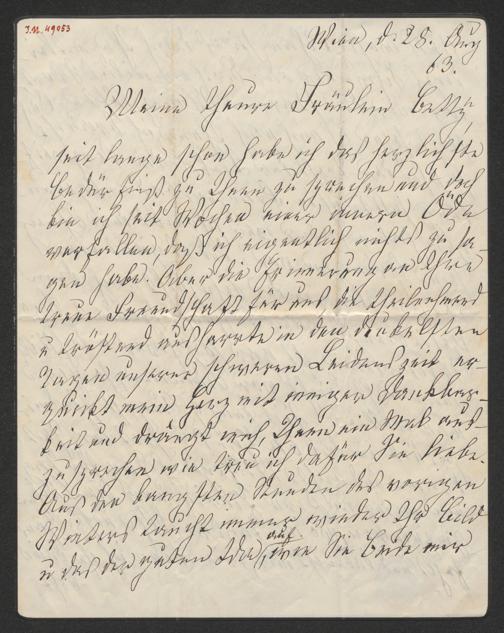 I.N. 49053
Wien, d. 28. Aug
63.
Meine theure Fräulein Betty,
seit lange schon habe ich das herzlichste
Bedürfniß zu Ihnen zu sprechen und doch
bin ich seit Wochen einer innern Öde
verfallen, daß ich eigentlich nichts zu sa-
gen habe. Aber die Erinnerung an Ihre
treue Freundschaft für uns die theilnehmend
u tröstend ausharrte in den dunkelsten
Tagen unserer schweren Leidenszeit er-
quickt mein Herz mit inniger Dankbar-
keit und drängt mich, Ihnen ein Mal aus-
zusprechen wie treu ich dafür Sie liebe.
Aus den bangsten Stunden des vorigen
Winters taucht immer wieder Ihr Bild
u das der guten Ida, auf
wie Sie beide mir